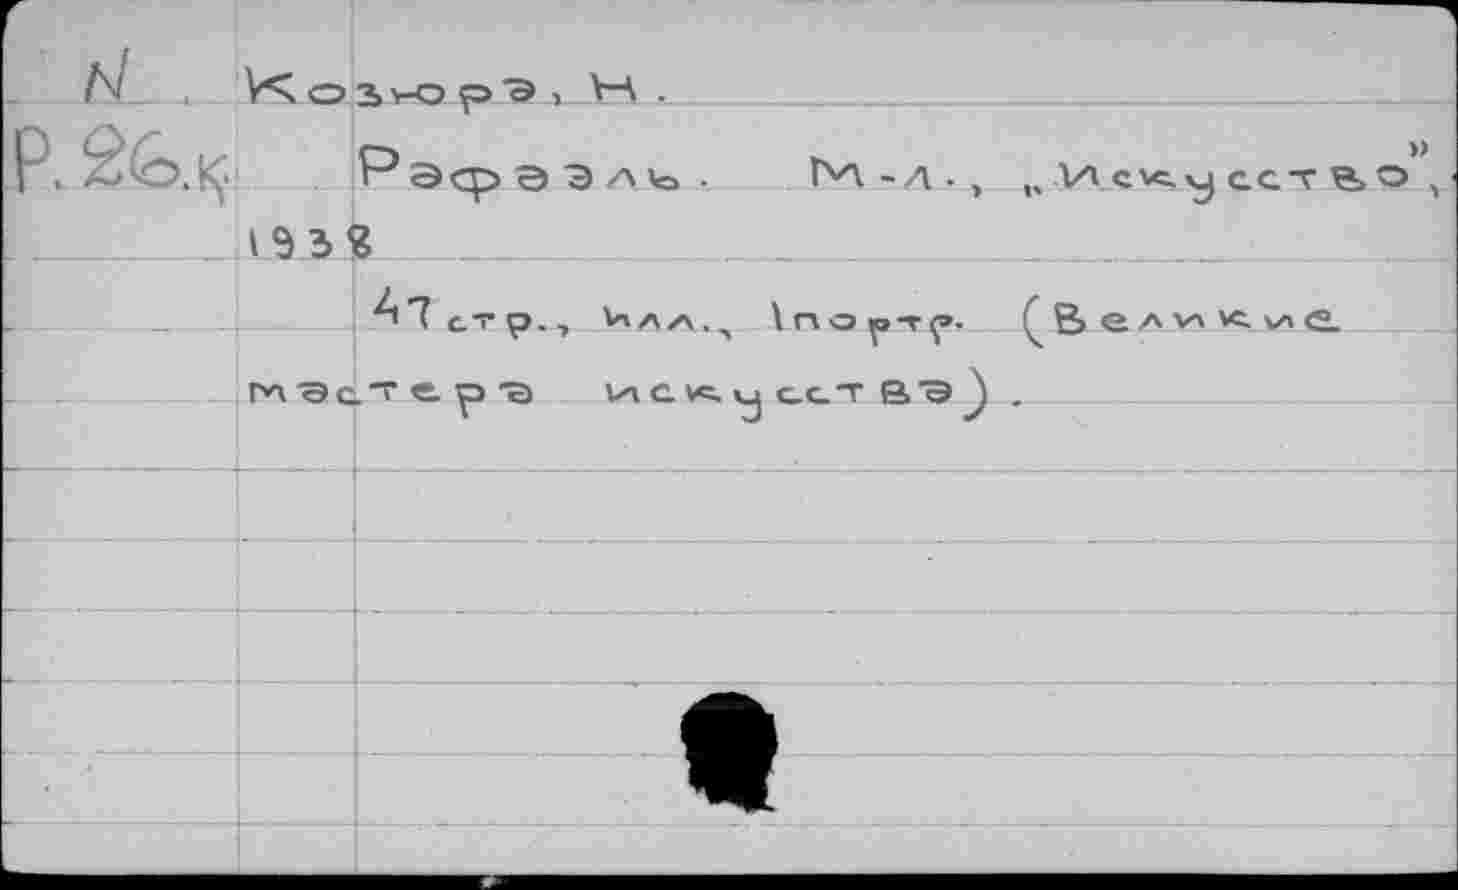 N. Козюра, Н.
Р.26.к. Рафаэль. М-Л., „Искусство”,
1938
47 стр., илл., 1 портр. (Великие
мастера искусства).